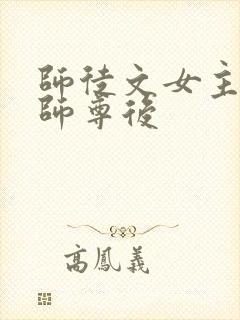 師徒文女主
師尊後
高鳳義